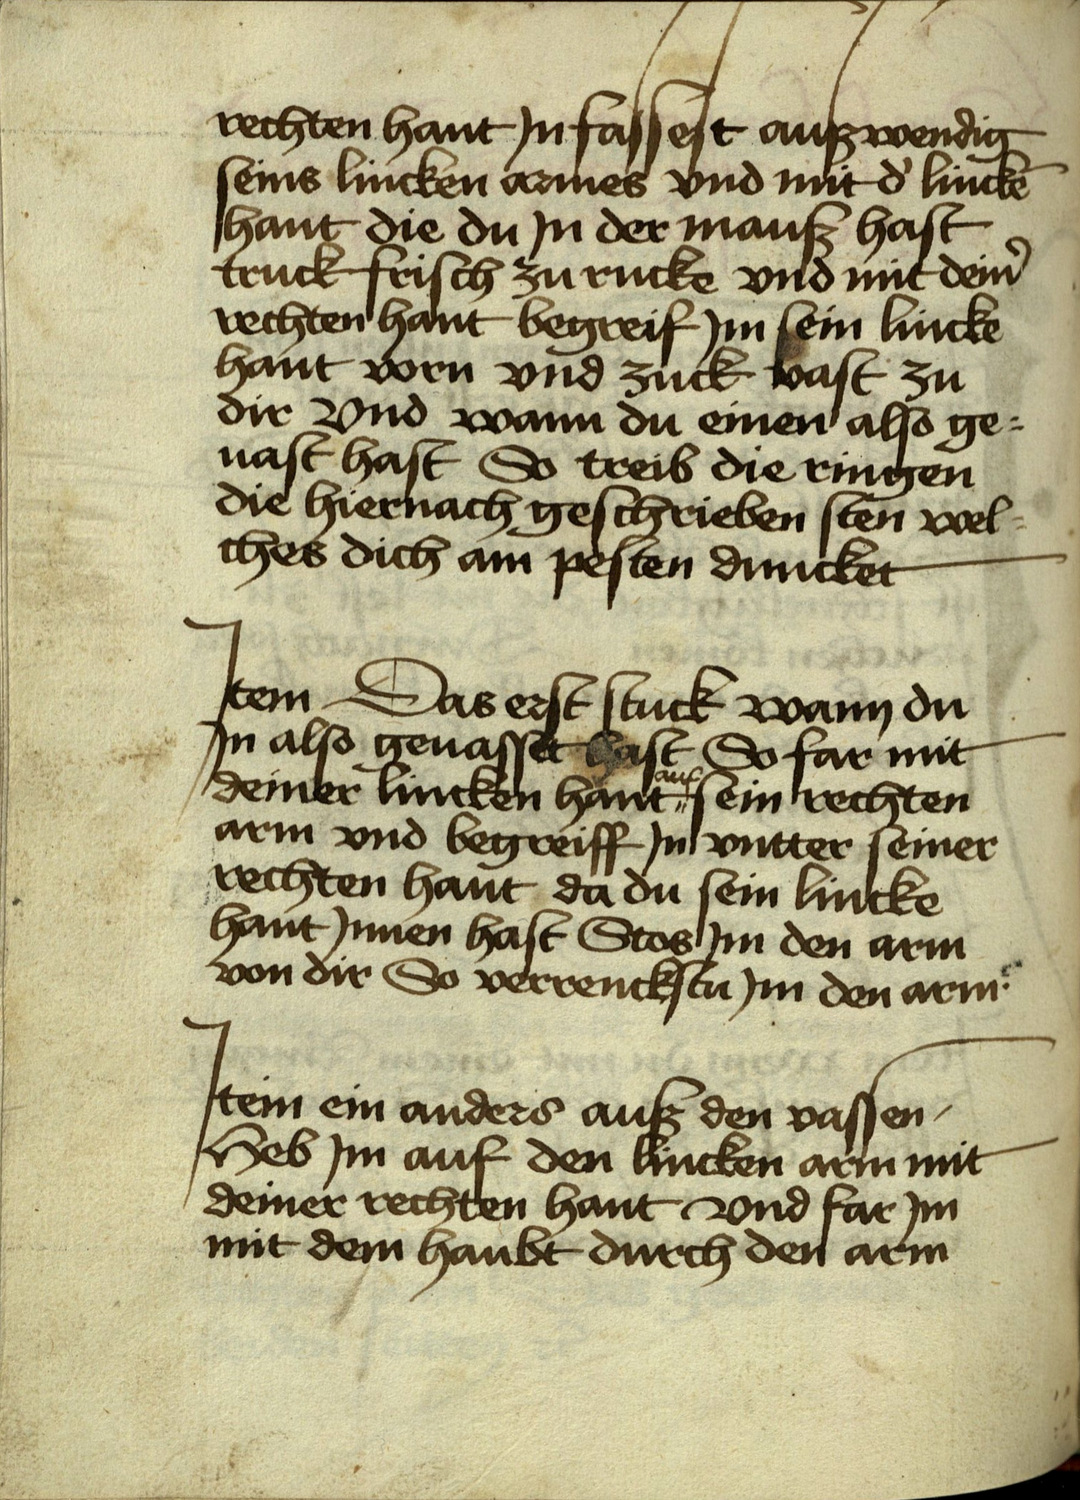 rechten hant Jn fassest außwendig
seins lincken armes vnd mit d' linckē
hant die du Jn der mauß hast
truck frisch zu rucke vnd mit dein'
rechten hant begreif Jm sein lincke
hant vorn vnd zuck vast zu
dir Vnd wann du einen also ge=
uast hast So treib die ringen
die hiernach geschrieben sten wel=
ches dich am pesten duncket
Jtem Das erst stuck wann du
Jn also geuasset hast So far mit
deiner lincken hant auf sein rechten
arm vnd begreiff Jn vntter seiner
rechten hant da du sein lincke
hant Jnnen hast Stos Jm den arm
von dir So verrenckstu Jm den arm
Jtem ein anders auß den vassen /
Heb Jm auf den lincken arm mit
deiner rechten hant vnd far Jm
mit dem haubt durch den arm